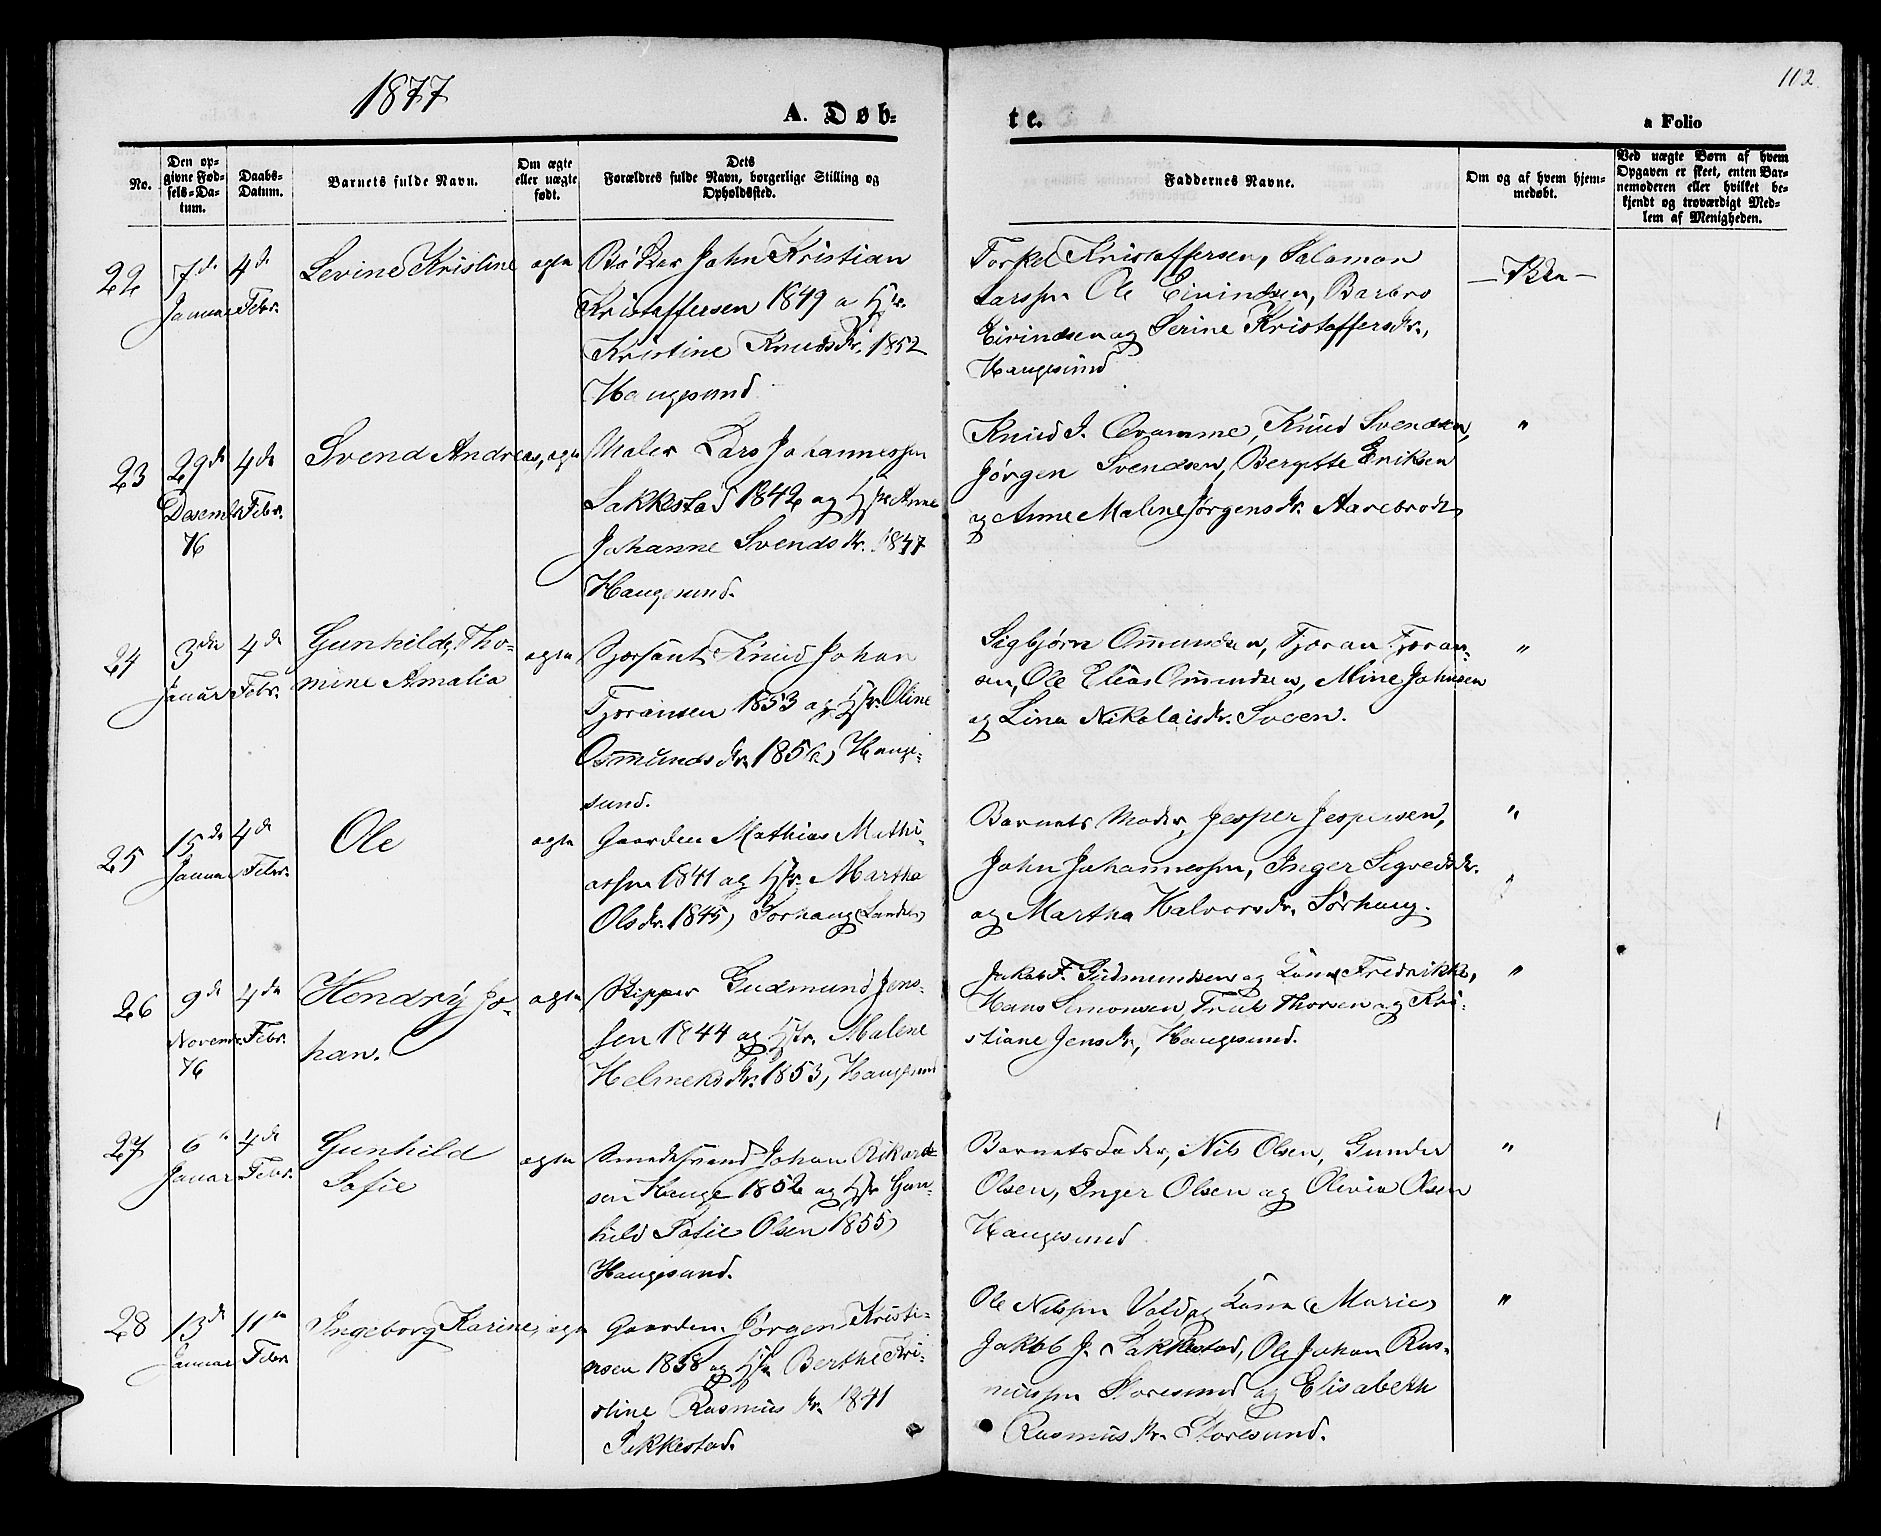 1877
102
A. Døb-
te.
a Folio
No.
Den op-
givne Fød-
sels-Da-
tum.
Daabs-
Datum.
Barnets fulde Navn.
Om ægte
eller uægte
født.
Dets
Forældres fulde Navn, borgerlige Stilling og
Opholdssted.
Faddernes Navne.
Om og af hvem hjem-
medøbt.
Ved uægte Børn af hvem
Opgaven er skeet, enten Bar-
nemoderen eller hvilket be-
kjendt og troværdigt Med-
lem af Menigheden.
22
7de
Januar
4de
Febr.
Levine Kristine
ægte
Bødker John Kristian
Kristoffersen 1849 og Hstr.
Kristine Knudsdr. 1852
Haugesund
Torkel Kristoffersen, Salamon
Larssen Ole Eivindsen, Barbro
Eivindsen og Serine Kristoffersdr.,
Haugesund
23
29de
Desemb.
76
4de
Febr.
Svend Andreas,
ægte
Maler Lars Johannessen
Sakkestad 1842 og Hstr. Anne
Johanne Svendsdr. 1847
Haugesund.
Knud J. Qvamme, Knud Svendsen,
Jørgen Svendsen, Bergitte Eriksen
og Anne Maline Jørgensdr. Aarebrodt
"
24
3die
Januar
4de
Febr.
Gunhilde Tho-
mine Amalia
ægte
Knud Johan
Tjøransen 1853 og Hstr. Oline
Osmundsdr. 1856, Hauge-
sund.
Sigbjørn Omundsen, Tjøran Tjøran-
sen, Ole Elias Omundsen, Mine Johnsen
og Lina Nikolaisdr. Sveen.
"
25
15de
Januar
4de
Febr.
Ole
ægte
Gaardm. Mathias Mathi-
assen 1841 og Hstr. Martha
Olsdr. 1845, Sørhaug Landet
Barnets Moder, Jesper Jespersen,
John Johannessen, Inger Sigvedsdr.
og Martha Halvorsdr. Sørhaug.
"
26
9de
Novemb.
76
4de
Febr.
Hendry Jo-
han.
ægte
Skipper Gudmund Jens-
sen 1844 og Hstr. Malene
Helmeksdr. 1853, Haugesund
Jakob F. Gudmundsen og Kone Fredrikke,
Hans Simonsen, Thorsen og Kri-
stiane Jensdr., Haugesund.
"
27
6
Januar
4de
Febr.
Gunhild
Sofie
ægte
Smedesvend Johan Rikard-
sen Hauge 1852 og Hstr Gun-
hild Sofie Olsen 1855,
Haugesund.
Barnets Fader, Nils Olsen, Gunder
Olsen, Inger Olsen og Olivia Olsen
Haugesund
"
28
13de
Januar
11te
Febr.
Ingeborg Karine,
ægte
Gaardm. Jørgen Kristi-
ansen 1838 og Hstr Berthe Kri-
stine Rasmusdr. 1841
Sakkestad.
Ole Nilssen Vold og Kone Marie
Jakob J. Sakkestad, Ole Johan Ras-
mussen Storesund og Elisabeth
Rasmusdr. Storesund.
"